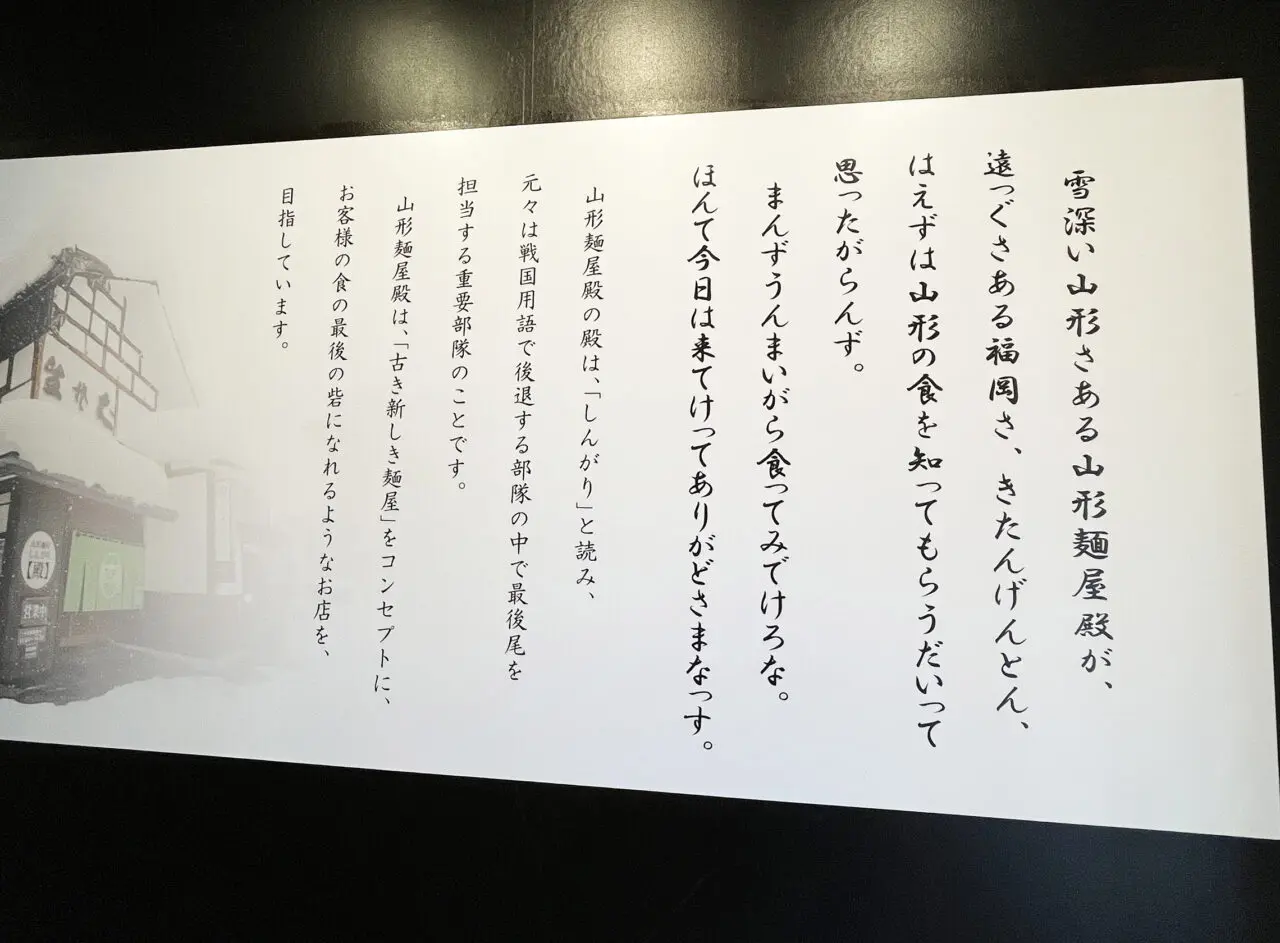 雪深い山形さある山形麺屋殿が、
遠っぐさある福岡さ、きたんげんとん、
はえずは山形の食を知ってもらうだいって
思ったがらんず。
まんずうんまいがら食ってみでけろな。
ほんて今日は来てけってありがどさまなっす。
山形麺屋殿の殿は、「しんがり」と読み、
元々は戦国用語で後退する部隊の中で最後尾を
担当する重要部隊のことです。
山形麺屋殿は、「古き新しき麺屋」をコンセプトに、
お客様の食の最後の砦になれるようなお店を、
目指しています。
【殿】
営業中